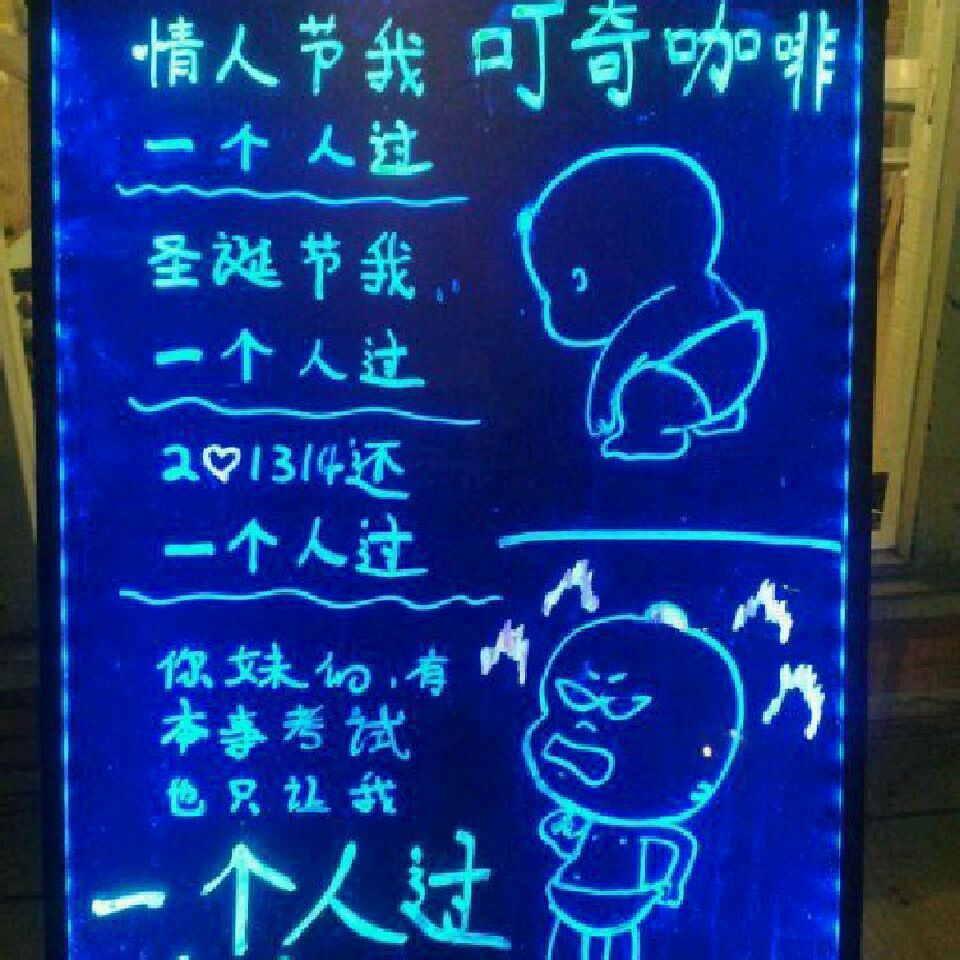 叮奇咖啡
情人节我
一个人过
圣诞节我
一个人过
2♡1314还
一个人过
你妹的,有
本事考试
也只让我
一个人过